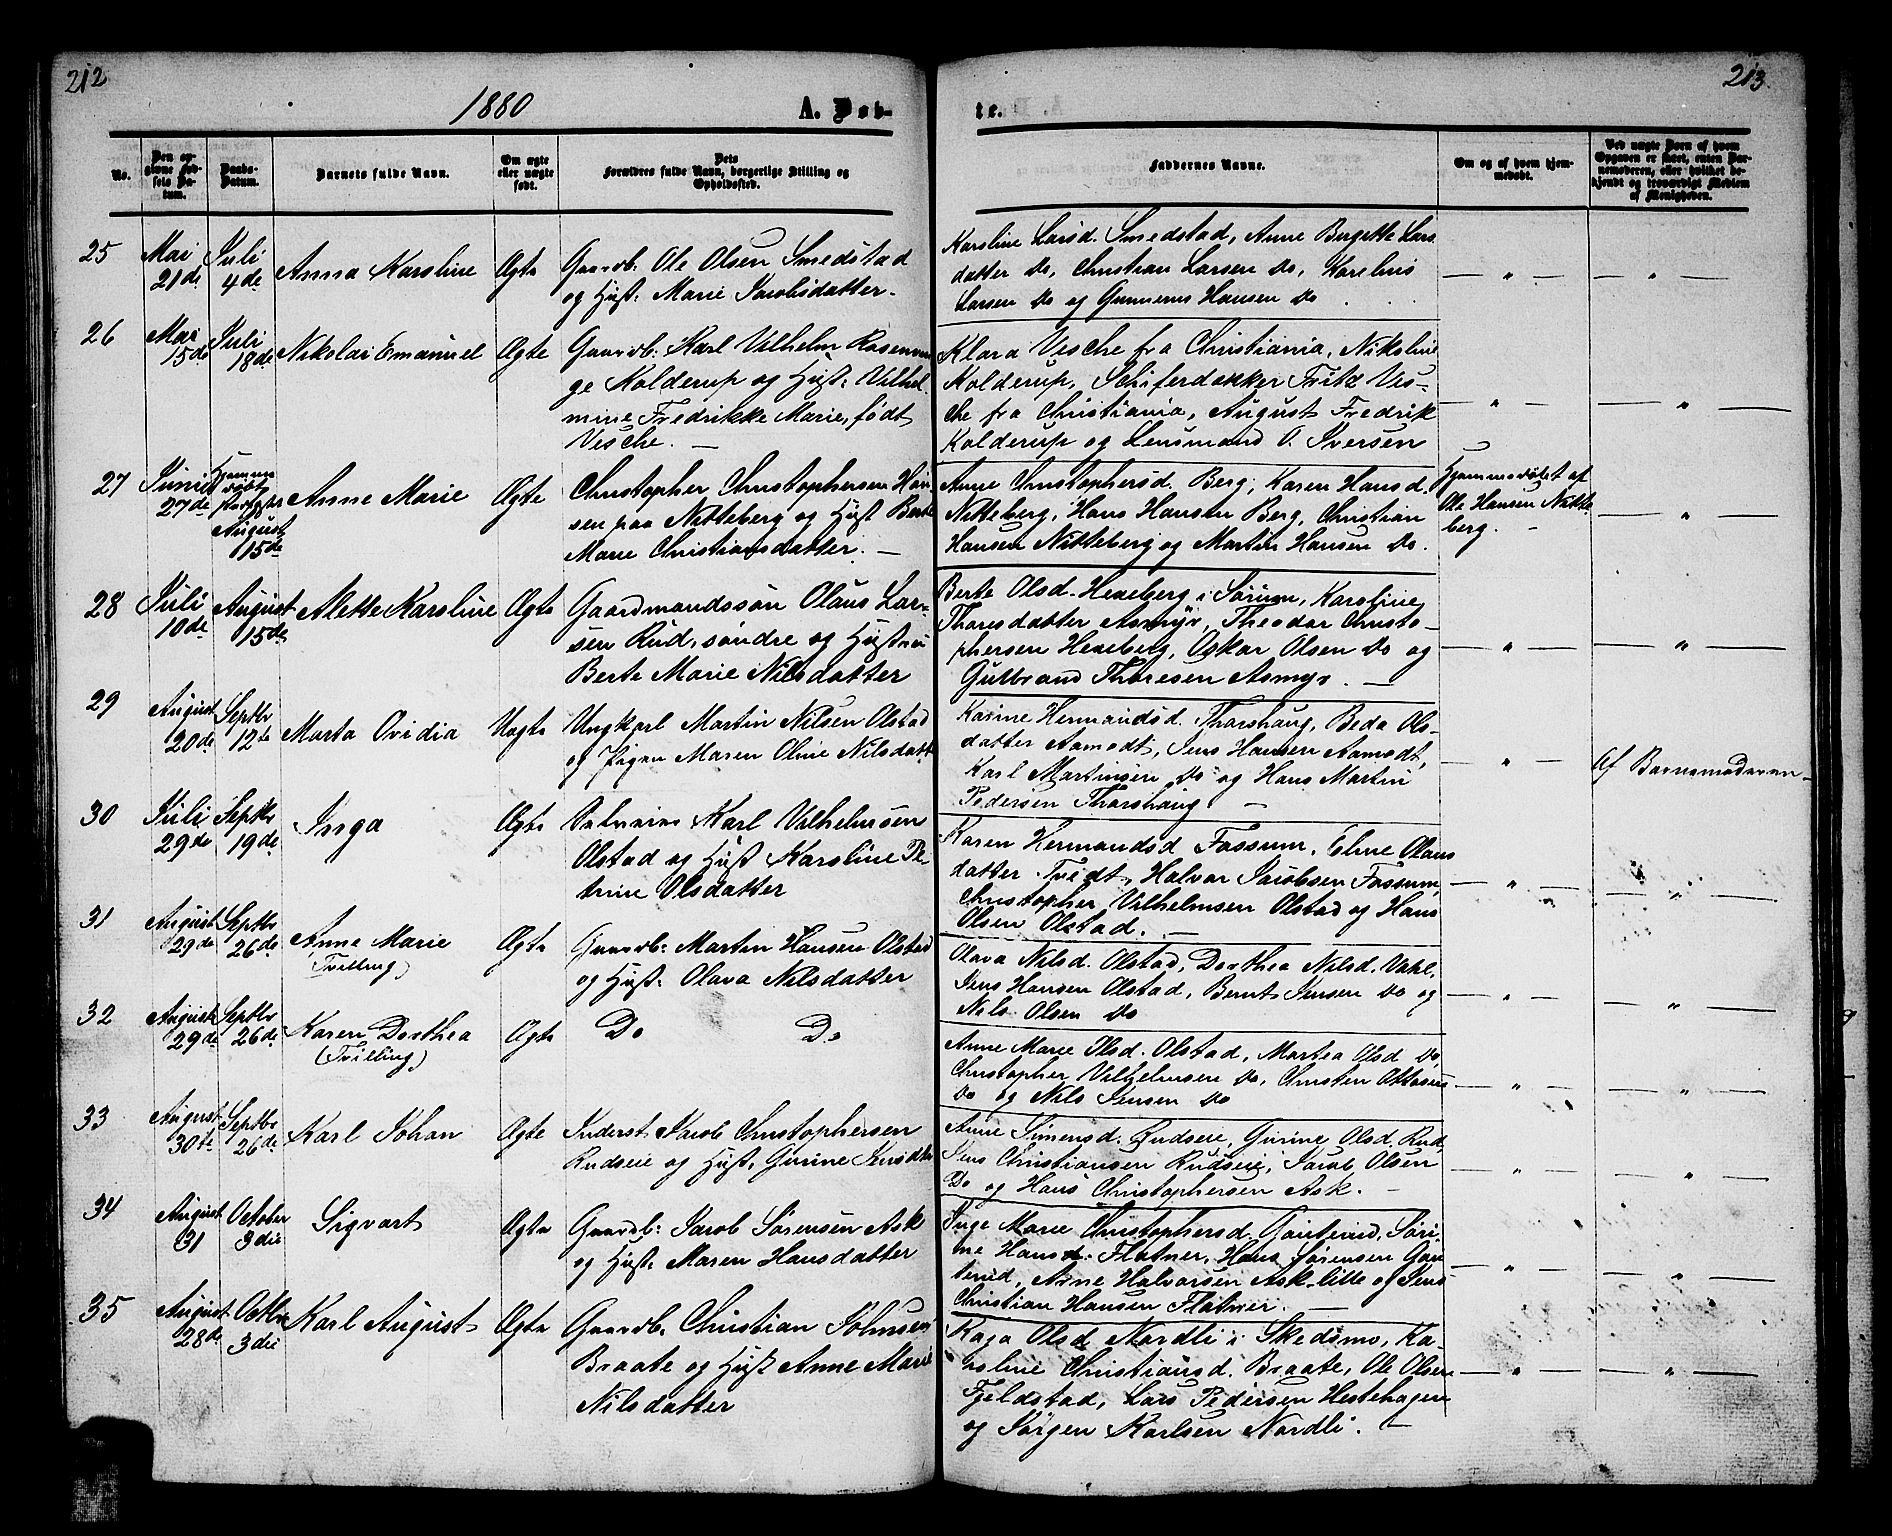 212
213.
1880
A. Døb-
te.
No.
Den opgivne Fødsels Datum.
Daabs-Datum.
Barnets fulde Navn.
Om ægte eller uægte født.
Dets Forældres fulde Navn, borgerlige Stilling og Opholdssted.
Faddernes Navne.
Om og af hvem hjemmedøbt.
Ved uægte Børn af hvem Opgaven er skeet, enten Barnemoderen, eller hvilket bekjendt og troværdigt Medlem af Menigheden.
25 Mai 21de Juli 4de Anna Karoline Ægte
Gaardb. Ole Olsen Smedstad
og Hust: Marie Jacobsdatter.
Karoline Larsd. Smedstad, Anne Bergette Lars
datter Do, Christian Larsen Do, Karelius
Larsen Do og Gunnerus Hansen Do
— " — — " —
26 Mai 15de Juli 18de Nikolai Emanuel Ægte
Gaardb: Karl Vilhelm Rosenvin
ge Kolderup og Hust: Vilhel
mine Fredrikke Marie, født
Vesche. —
Klara Vesche fra Christiania, Nikoline
Kolderup, Schiferdækker Fritz Ves-
che fra Christiania, August Fredrik
Kolderup og Lensmand O. Iversen
— " — — " —
27 Juni 27de Hjemmedøbt August 15de Anne Marie Ægte
Christopher Christophersen Han
sen paa Nitteberg og Hust Berte
Marie Christiansdatter. —
Anne Christophersd. Berg, Karen Hansd.
Nitteberg, Hans Hansen Berg, Christian
Hansen Nitteberg og Martin Hansen Do.
Hjemmedøbt af
Ole Hansen Nitte
berg. — — " —
28 Juli 10de August 15de Alette Karoline Ægte
Gaardmandssøn Olaus Lar-
sen Rud, søndre og Hustru
Berte Marie Nilsdatter
Berte Olsd. Hexeberg i Sørum, Karoline
Thoresdatter Asmyr, Theodor Christo-
phersen Hexeberg, Oskar Olsen Do og
Gulbrand Thoresen Asmyr. —
— " — — " —
29 August 20de Septbr 12te Marta Ovidia Uægte
Ungkarl Martin Nilsen Olstad
og Pigen Maren Oline Nilsdatter
Karine Hermandsd. Thorshaug, Beda Ols-
datter Aamodt, Jens Hansen Aamodt,
Karl Martinsen Do og Hans Martin
Pedersen Thorshaug —
— " — Af Barnemoderen
30 Juli 29de Septbr 19de Inga Ægte
Karl Vilhelmsen
Olstad og Hust Karoline Pe-
trine Olsdatter
Karen Hermandsd Fossum, Eline Olaus
datter Tvedt, Halvor Jacobsen Fossum,
Christopher Vilhelmsen Olstad og Hans
Olsen Olstad. —
— " — — " —
31 August 29de Septbr 26de Anne Marie (Tvilling) Ægte
Gaardb: Martin Hansen Olstad
og Hust: Olava Nilsdatter
Olava Nilsd. Olstad, Dorthea Nilsd. Vahl,
Jens Hansen Olstad, Bernt Jensen Do og
Nils Olsen Do
— " — — " —
32 August 29de Septbr 26de Karen Dorthea (Tvilling) Ægte
Do Do
Anne Marie Olsd. Olstad, Martea Olsd Do
Christopher Vilhelmsen Do, Christen Ottosen
Do og Nils Jensen Do
— " — — " —
33 August 30te Septbr 26de Karl Johan Ægte
Inderst Jacob Christophersen
Rudseie og Hust: Gurine Jensdtr
Anne Simensd. Rudseie, Gurine Olsd. Rud,
Jens Christiansen Rudseie, Jacob Olsen
Do og Hans Christophersen Ask. —
— " — — " —
34 August 31 October 3die Sigvart Ægte
Gaardb: Jacob Sørensen Ask
og Hust: Maren Hansdatter
Inge Marie Christophersd. Gouterud, Søri-
ne Hansd. Flatner, Hans Sørensen Gou
terud, Arne Halvorsen Ask lille og Jens
Christian Hansen Flatner. —
— " — — " —
35 August 28de Octbr 3die Karl August Ægte
Gaardb. Christian Johnsen
Braate og Hust Anne Marie
Nilsdatter
Kaja Olsd Nordli i Skedsmo, Ka-
roline Christiansd. Braate, Ole Olsen
Fjeldstad, Lars Pedersen Hestehagen
og Jørgen Karlsen Nordli. —
— " — — " —